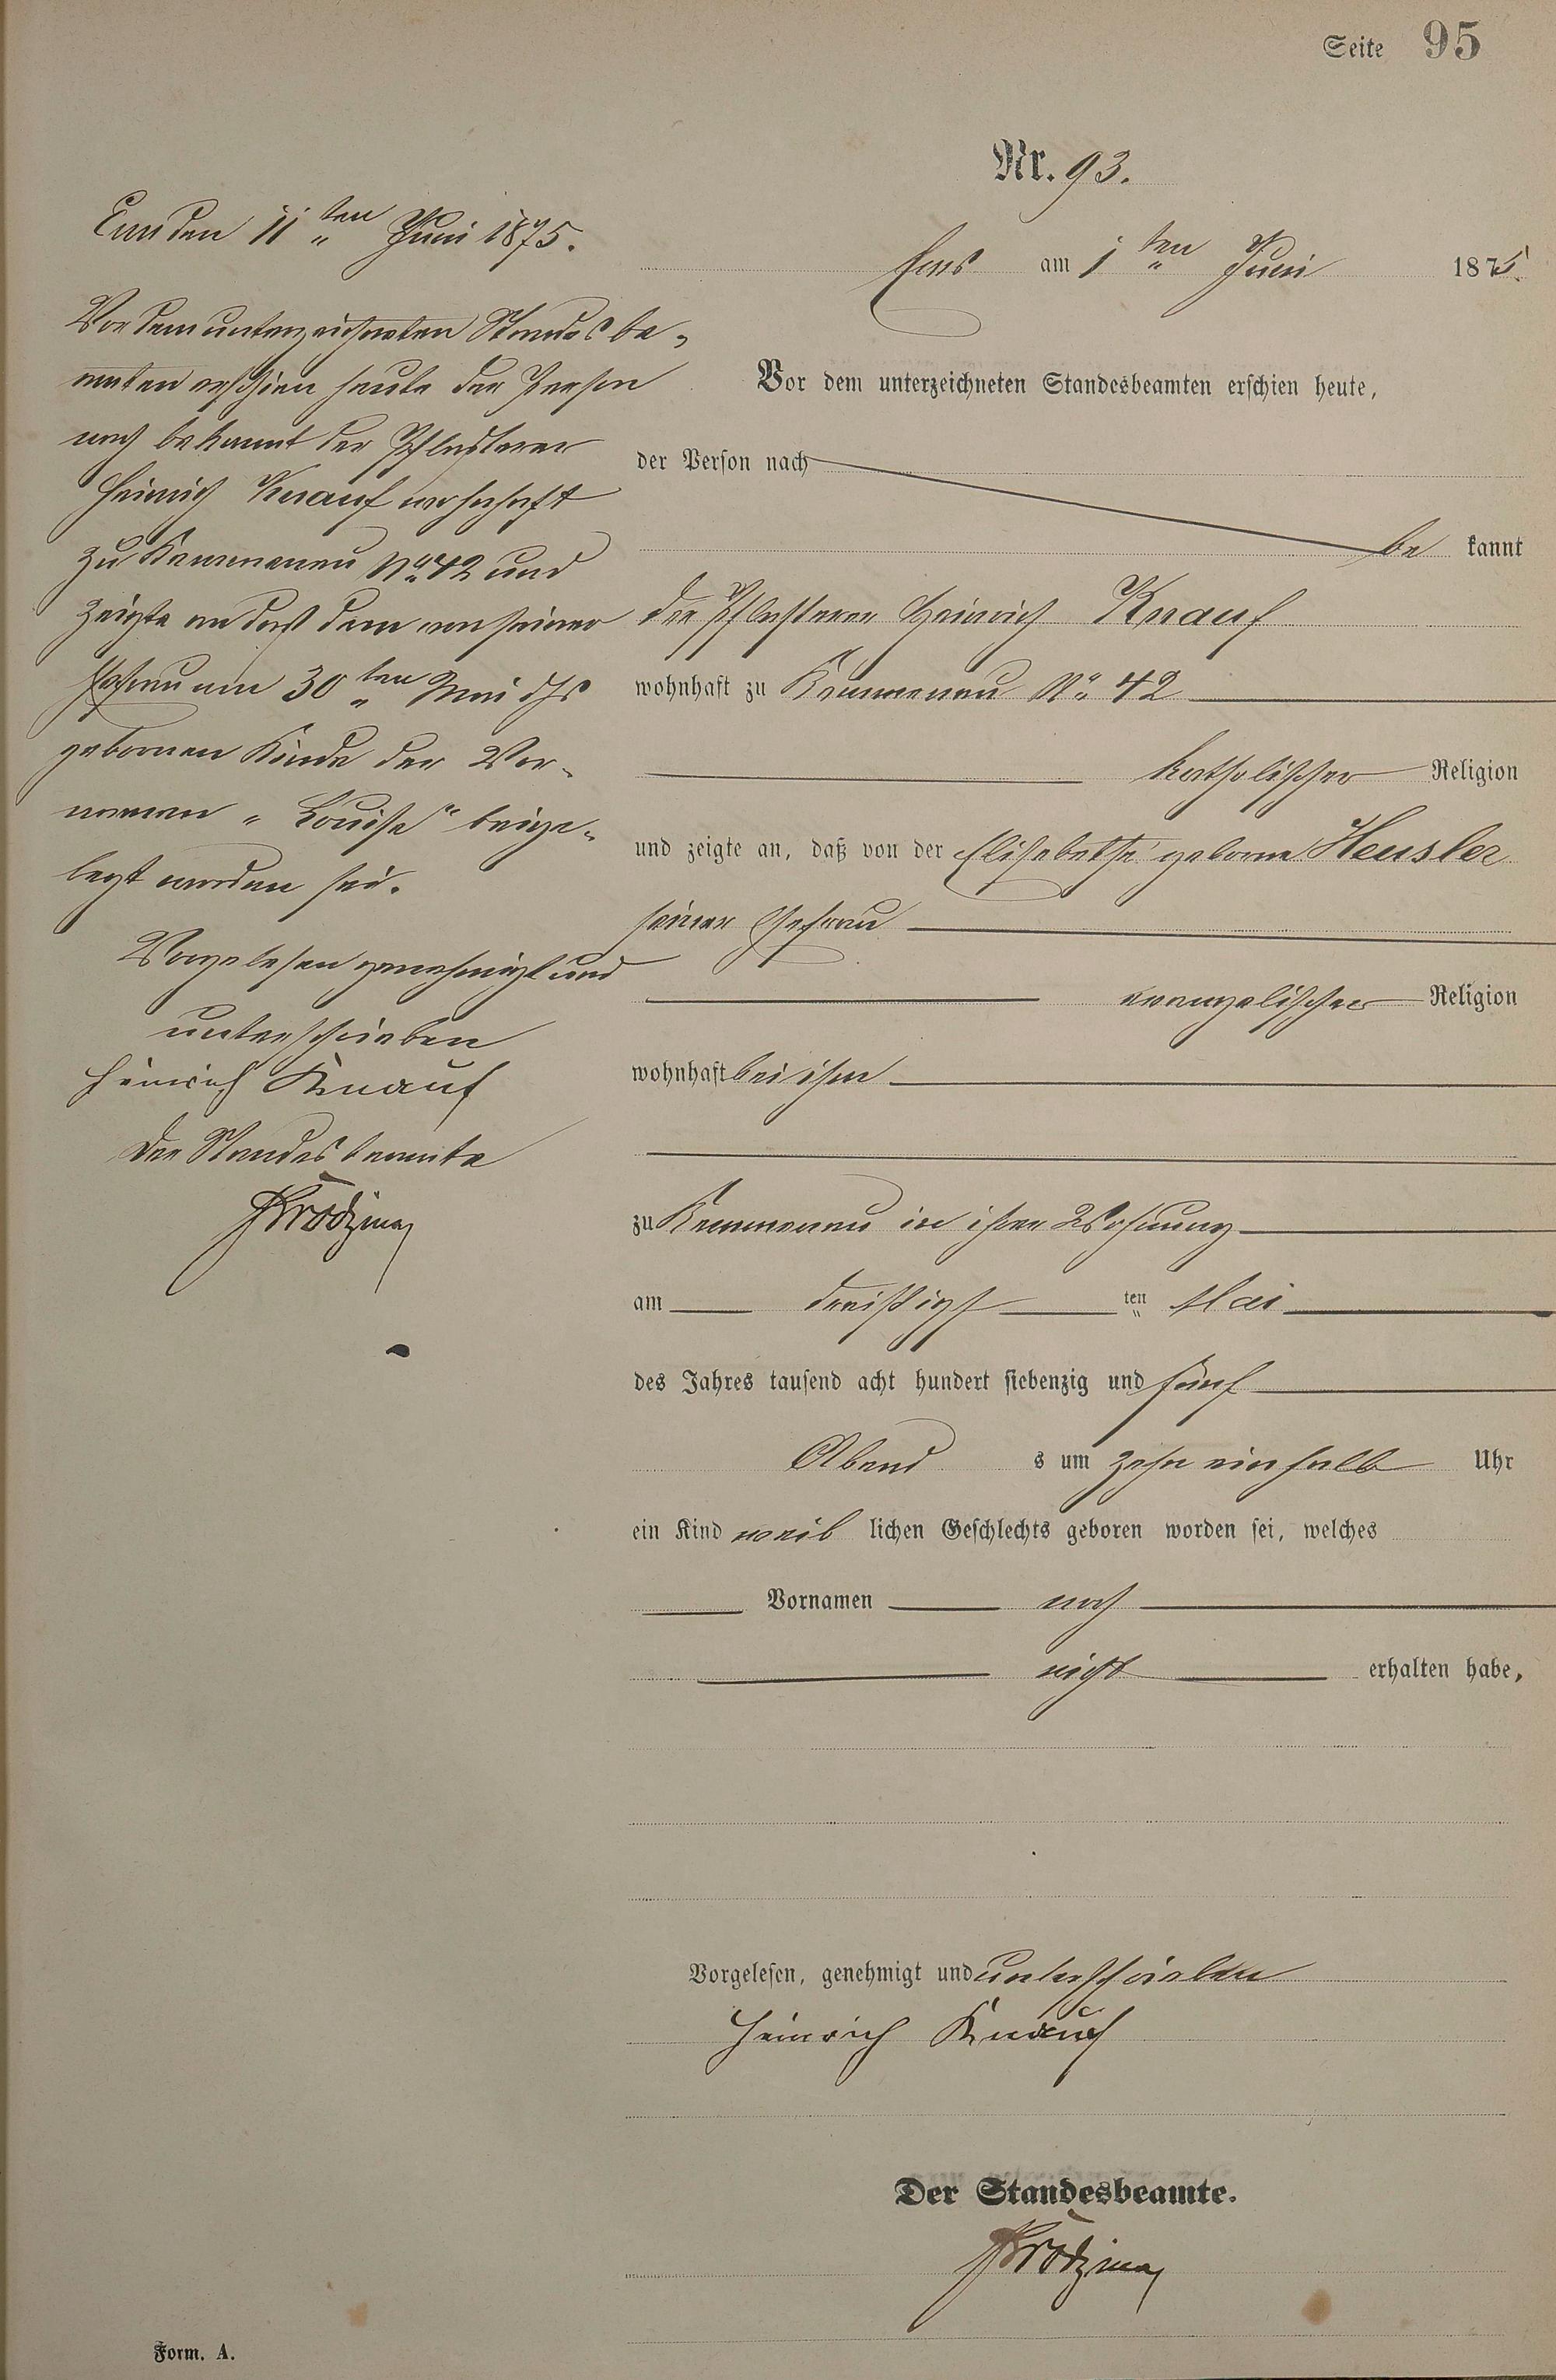 Seite 95
Nr. 93.
Ems den 11ten Juni 1875.
Vor dem unterzeichneten Standesbe-
amten erschien heute der Person
nach bekannt der Pflasterer
Heinrich Knauf wohnhaft
zu Kemmenau No 42 und
zeigte an daß dem von seiner
Ehefrau am 30ten Mai dJs
gebornen Kinde der Vor-
namen "Louise" beige-
legt worden sei.
Vorgelesen genehmigt und
unterschrieben
Heinrich Knauf
Der Standesbeamte
Ems am 1ten Juni 1875.
Vor dem unterzeichneten Standesbeamten erschien heute,
der Person nach
be kannt
der Pflasterer Heinrich Knauf
wohnhaft zu Kemmenau No 42
katholischer Religion
und zeigte an, daß von der Elisabethe geborne Heusler
seiner Ehefrau
evangelischer Religion
wohnhaft bei ihm
zu Kemmenau in ihrer Wohnung
am dreißigsten Mai
des Jahres tausend acht hundert siebenzig und fünf
Abend s um zehn einhalb Uhr
ein Kind weib lichen Geschlechts geboren worden sei, welches
Vornamen noch
nicht erhalten habe,
Vorgelesen, genehmigt und unterschrieben
Heinrich Knauf
Der Standesbeamte.
Form. A.